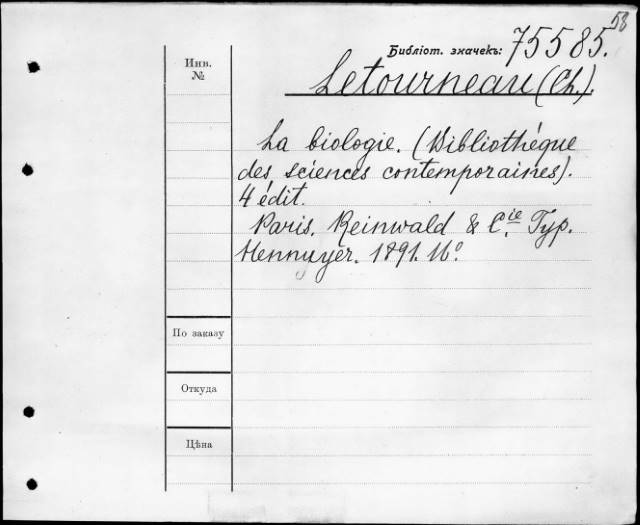 58
Библіот. значекъ: 75585.
Инв.
№
Letourneau (Ch.).
La biologie. (Bibliothéque
des sciences contemporaines).
4 édit.
Paris. Reinwald & C.ie Typ.
Hennuyer. 1891. 16º
По заказу
Откуда
Цѣна